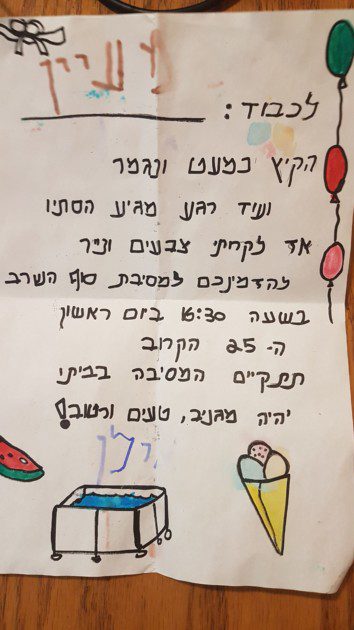 מעיין
לכבוד: 
הקיץ כמעט ונגמר
ועוד רגע מגיע הסתיו
אז לקחתי צבעים ונייר
להזמינכם למסיבת סוף השרב
בשעה 16:30 ביום ראשון
ה- 25 הקרוב
תתקיים המסיבה בביתי
יהיה מגניב, טעים ורטוב!